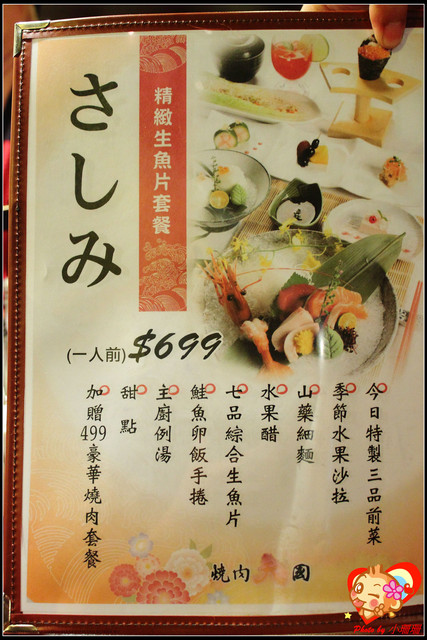 さしみ
精緻生魚片套餐
(一人前)$699
今日特製三品前菜
季節水果沙拉
山藥細麵
水果醋
七品綜合生魚片
鮭魚卵飯手捲
主廚例湯
甜點
加贈499豪華燒肉套餐
燒肉
園
Photo by 小